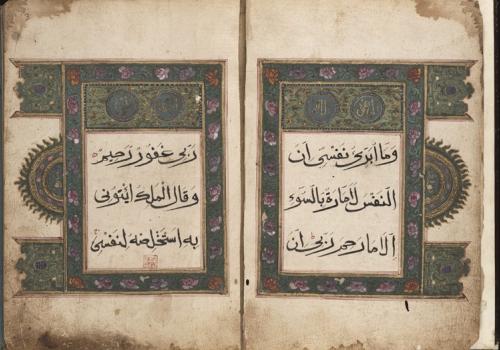 وما أبرئ نفسي ان
النفس لامارة بالسوء
الا ما رحم ربي ان
ربي غفور رحيم
وقال الملك ائتوني
به استخلصه لنفسي